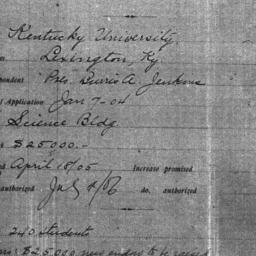 Kentucky University,
Lexington, Ky
pondent Pres. Burris A. Jenkins
Application Jan 7-04
Science Bldg
$25000.-
April 15/05 Increase promised
authorized July 8/06 do. authorized
240 students
$25,000 new endow to be raised